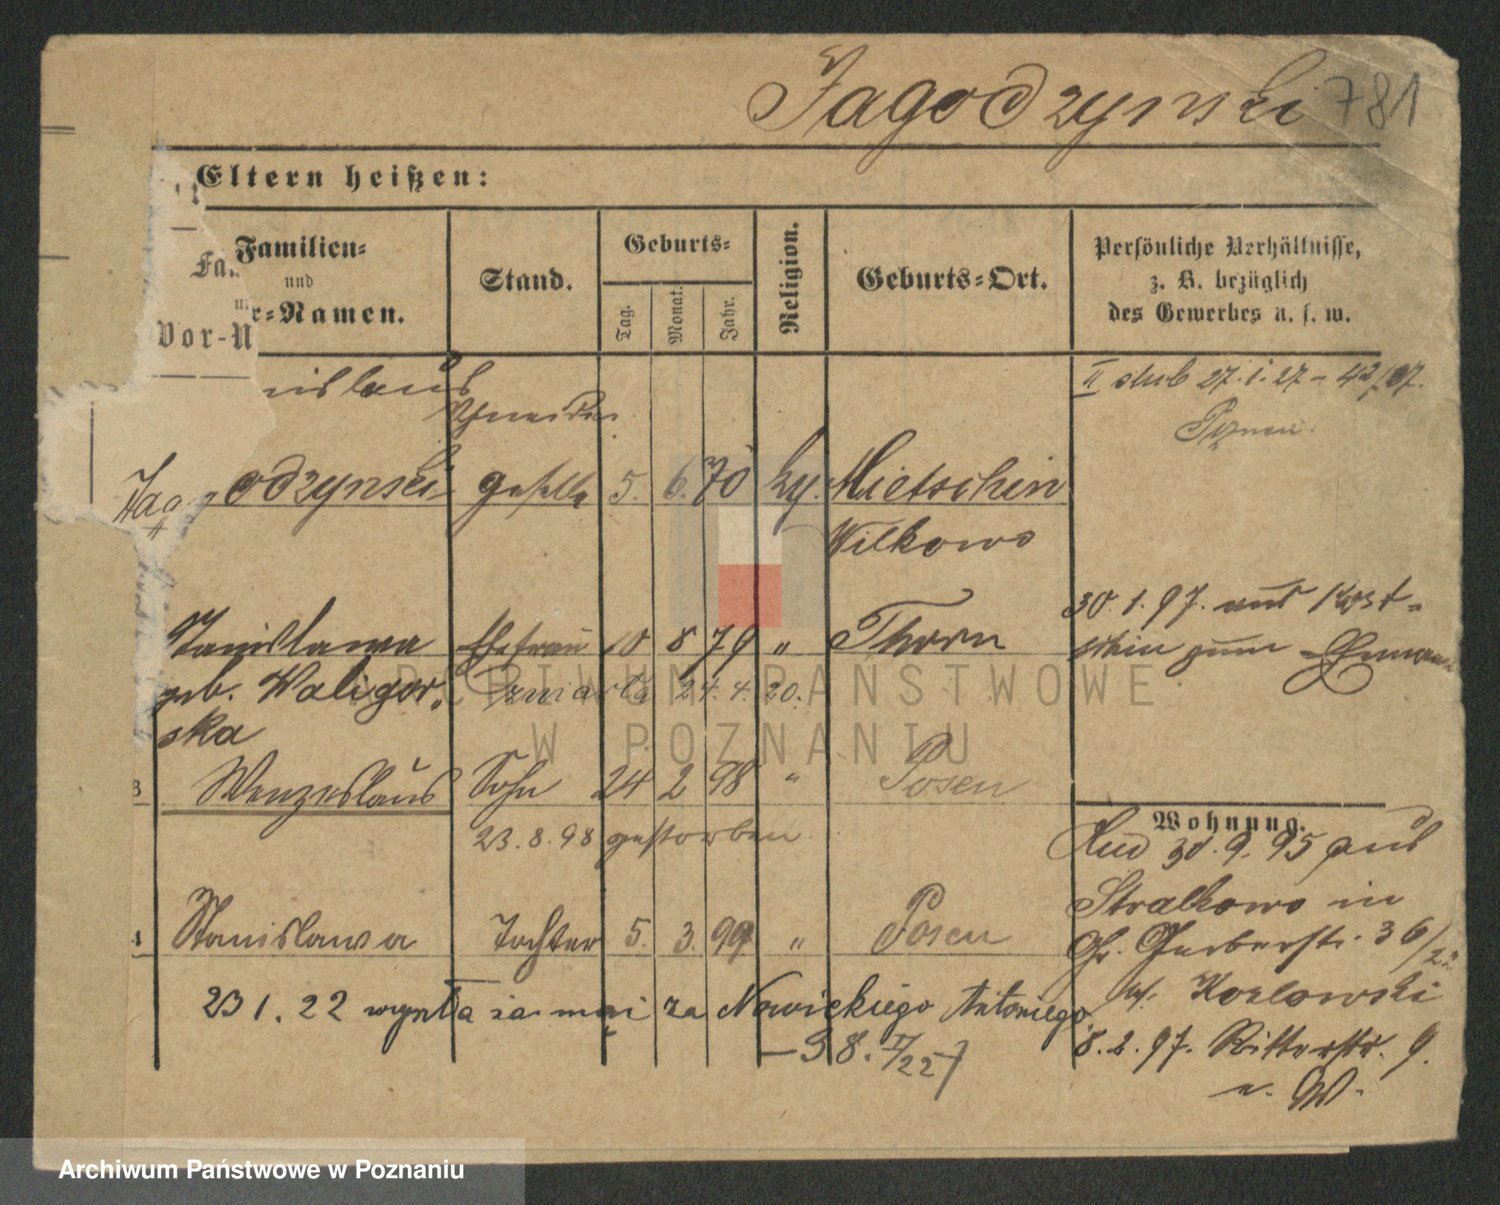 Jagodzynski 781
Eltern heißen:
Familien-
und
r-Namen.
Fa
Vor-N
Stand.
Geburts-
Tag.
Monat.
Jahr.
Religion.
Geburts-Ort.
Persönliche Verhältnisse,
z. B. bezüglich
des Gewerbes u. s. w.
nislaus
Schneider
II slub 27.1.27 - 42/07.
Jagodzynski geselle 5. 6. 70 ky. Mietschin
Wilkowo
30.1.97. aus Kost-
schin zum
Stanislawa Ehefrau 10 8 79 " Thorn
geb. Waligor-
ska
zmarła 24.4.20.
3 Wenzeslaus Sohn 24 2 98 " Posen
23.8.98 gestorben
Wohnung.
Zud 30.9.95 aus
Stralkowo in
Gr. Gerberstr. 36/22
bei Kozlowski
4 Stanislawa Tochter 5. 3. 99 " Posen
23 1.22 wyszła za mąż za Nowickiego Antoniego
8.2.97. Ritterstr. 9.
n. W.
ARCHIWUM PAŃSTWOWE
W POZNANIU
Archiwum Państwowe w Poznaniu